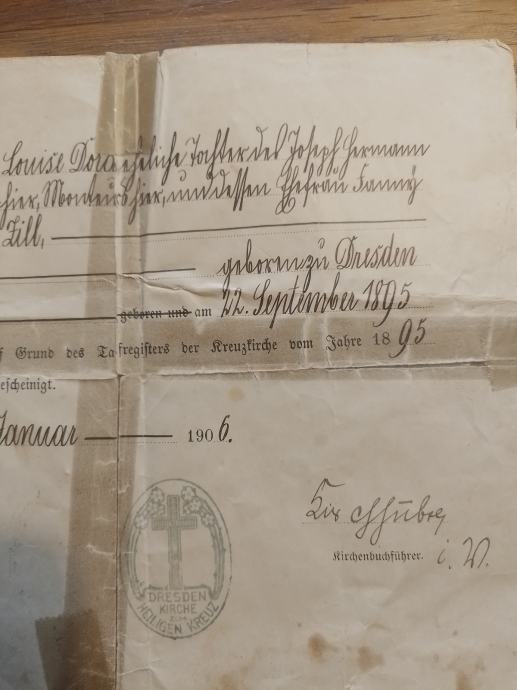 Louise Dora eheliche Tochter des Joseph Hermann
hier, Monteurs hier, und dessen Ehefrau Fanny
Zill,
geboren zu Dresden
geboren und am 22. September 1895
Grund des Taufregisters der Kreuzkirche vom Jahre 1895
escheinigt.
Januar 1906.
Kirchenbuchführer. i. V.
DRESDEN
KIRCHE
ZUM
HEILIGEN KREUZ